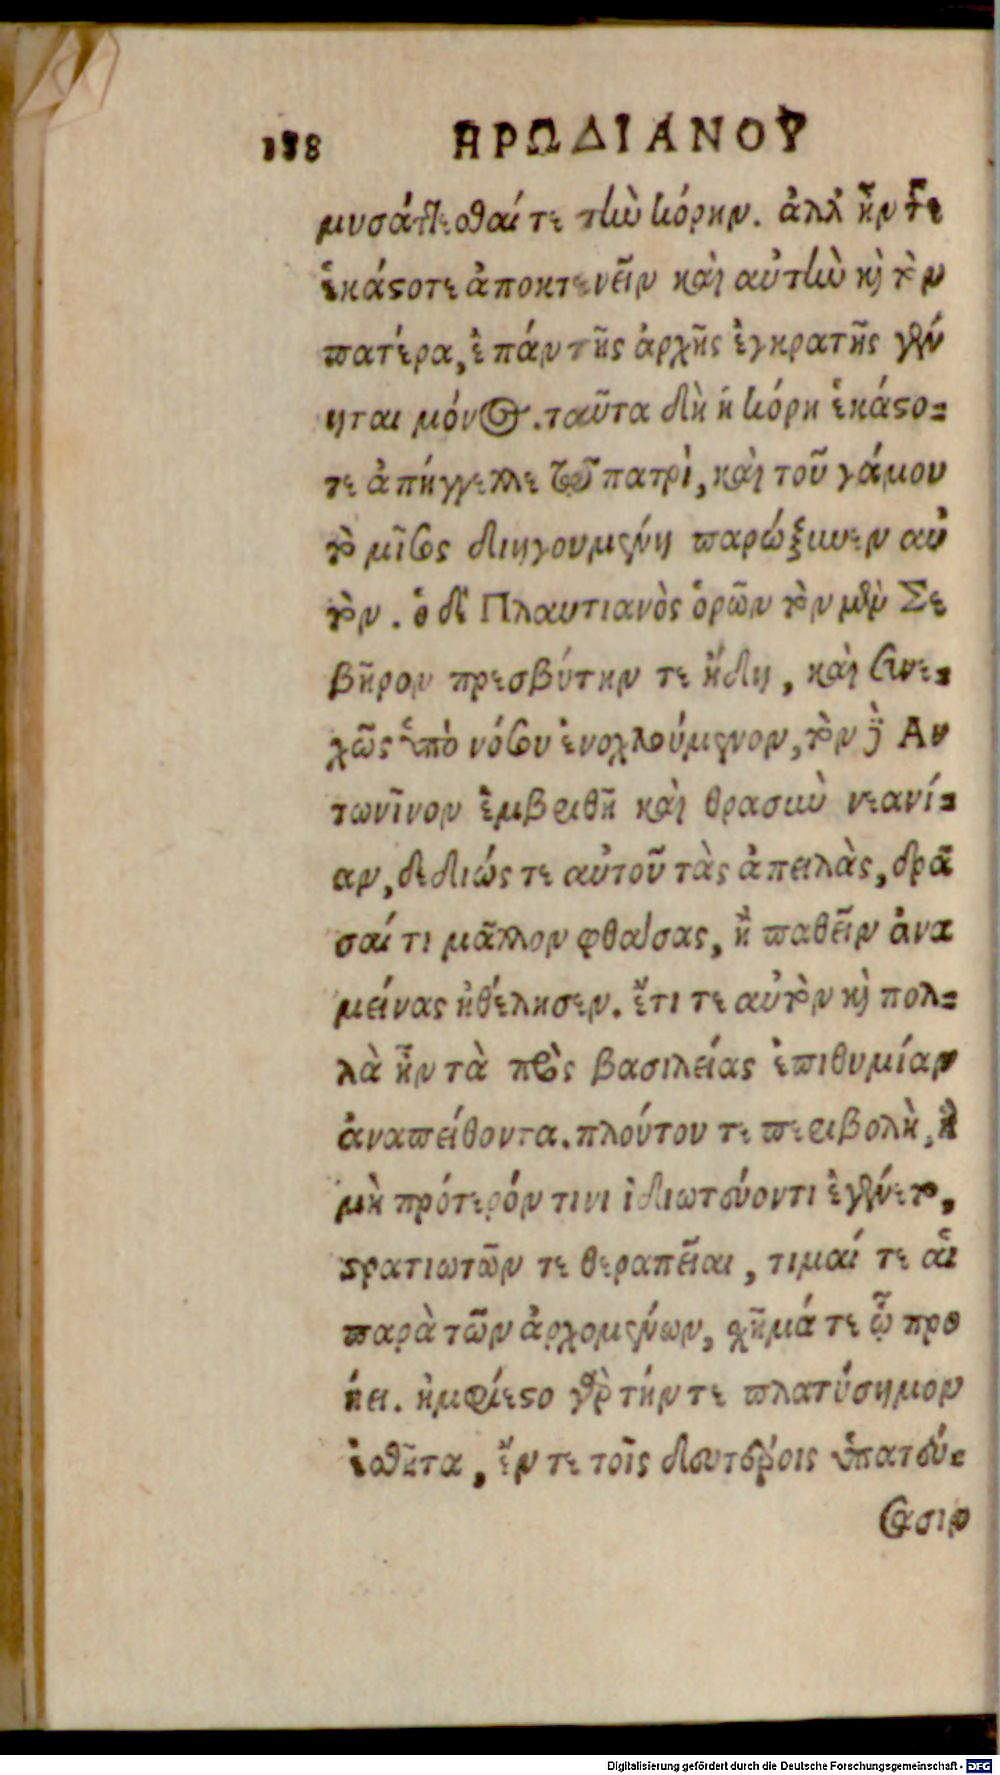 158 ΗΡΩΔΙΑΝΟΥ
μυσάττεσθαί τε τὴν κόρην. ἀλλ' ἠπεί
ἑκάστοτε ἀποκτενεῖν καὶ αὐτὴν καὶ τὸν
πατέρα, ἐπὰν τῆς ἀρχῆς ἐγκρατὴς γέν
ηται μόνος. ταῦτα δὴ ἡ κόρη ἑκάστο-
τε ἀπήγγελλε τῷ πατρὶ, καὶ τοῦ γάμου
τὸ μῖσος διηγουμένη παρώξυνεν αὐ
τόν. ὁ δὲ Πλαυτιανὸς ὁρῶν τὸν μὲν Σε
βῆρον πρεσβύτην τε ἤδη, καὶ συνε-
χῶς ὑπὸ νόσου ἐνοχλούμενον, τὸν δὲ Αν
τωνῖνον ἐμβριθῆ καὶ θρασιὺ νεανί-
αν, δεδιώς τε αὐτοῦ τὰς ἀπειλὰς, δρᾶ
σαί τι μᾶλλον φθάσας, ἢ παθεῖν ἀνα
μείνας ἠθέλησεν. ἔτι τε αὐτὸν καὶ πολ-
λὰ ἦν τὰ πρὸς βασιλείας ἐπιθυμίαν
ἀναπείθοντα. πλούτου τε περιβολὴ, ἣ
μὴ πρότερόν τινι ἰδιωτεύοντι ἐγένετο,
στρατιωτῶν τε θεραπεῖαι, τιμαί τε αἱ
παρὰ τῶν ἀρχομένων, σχῆμά τε ᾧ προ
ῄει. ἠμφίεστο γὰρ τήν τε πλατύσημον
ἐσθῆτα, ἔν τε τοῖς δευτέροις ὑπατεύ-
σασιν
Digitalisierung gefördert durch die Deutsche Forschungsgemeinschaft - DFG